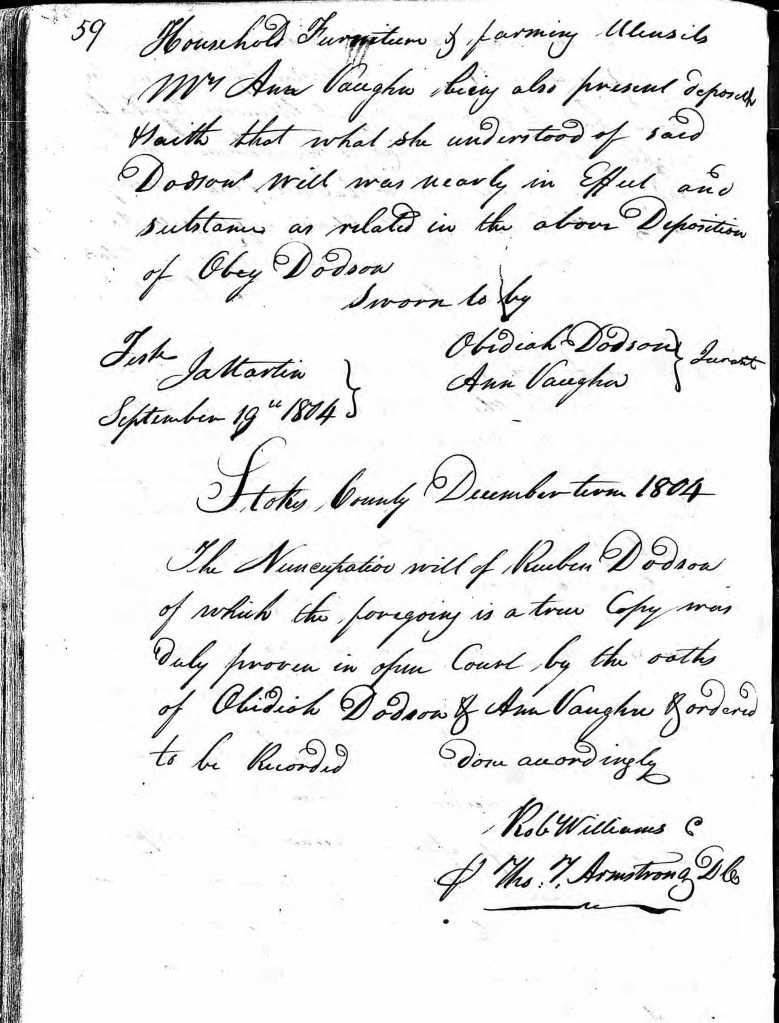 59
Household Furniture & farming Utensils
Mrs Ann Vaughn being also present deposeth
& saith that what she understood of said
Dodsons will was nearly in Effect and
substance as related in the above Deposition
of Obey Dodson
Sworn to by
Obidiah Dodson } Jurat
Ann Vaughn
Test
Ja Martin }
September 19th 1804
Stokes County December term 1804
The Nuncupative will of Reuben Dodson
of which the foregoing is a true Copy was
duly proven in open Court by the oaths
of Obidiah Dodson & Ann Vaughn & ordered
to be Recorded done accordingly
Rob Williams C
Tho. T. Armstrong DC